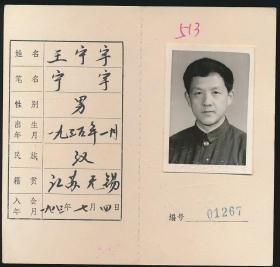 513
姓名 王宇宇
笔名 宇宇
性别 男
出生年月 一九三五年一月
民族 汉
籍贯 江苏无锡
入会年月 一九八三年七月四日
编号 01267